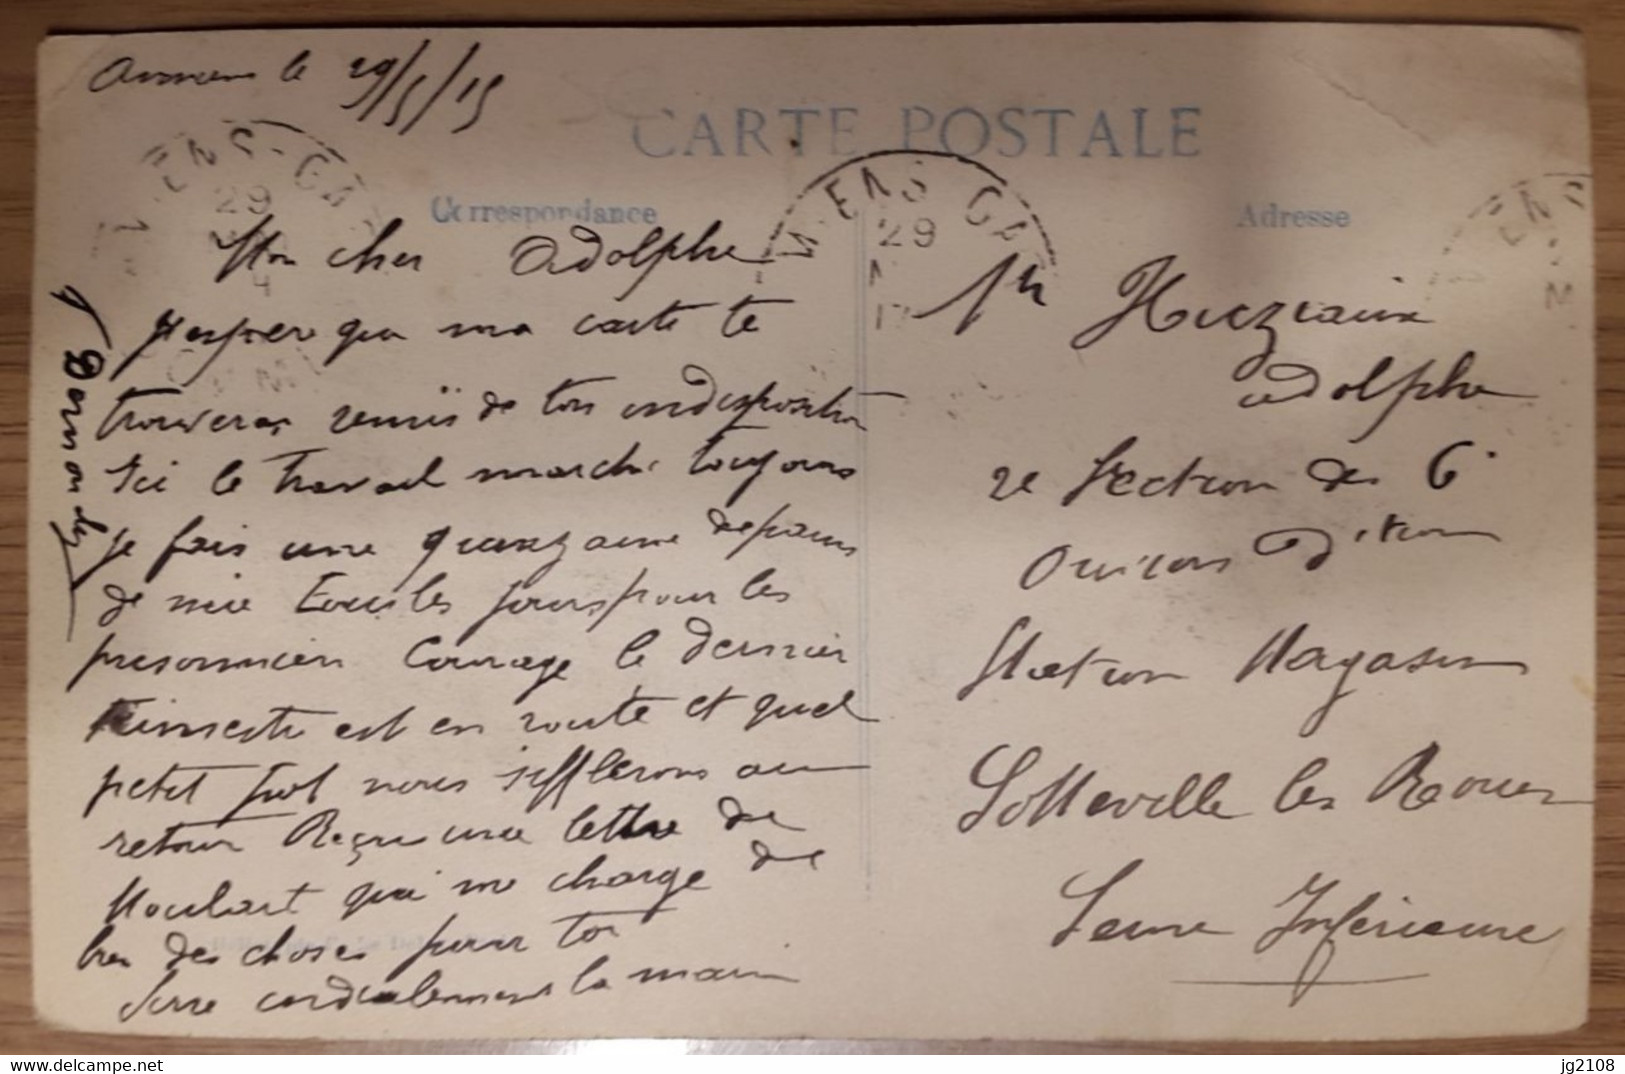 le 29/5/15
CARTE POSTALE
Correspondance
Adresse
MIENS-GA
29
Mon cher Adolphe
J'espère que ma carte te
trouveras remis de ton indisposition
Ici le travail marche toujours
je fais une quinzaine de pains
de mie tous les jours pour les
prisonniers Courage le dernier
trimestre est en route et quel
petit nous sifflerons au
retour Reçu une lettre de
Moulart qui me charge de
bien des choses pour toi
Serre cordialement la main
Mr
Adolphe
2e Section des C
Ouvriers d'
Station Magasin
Sotteville les Rouen
Seine Inférieure
jg2108